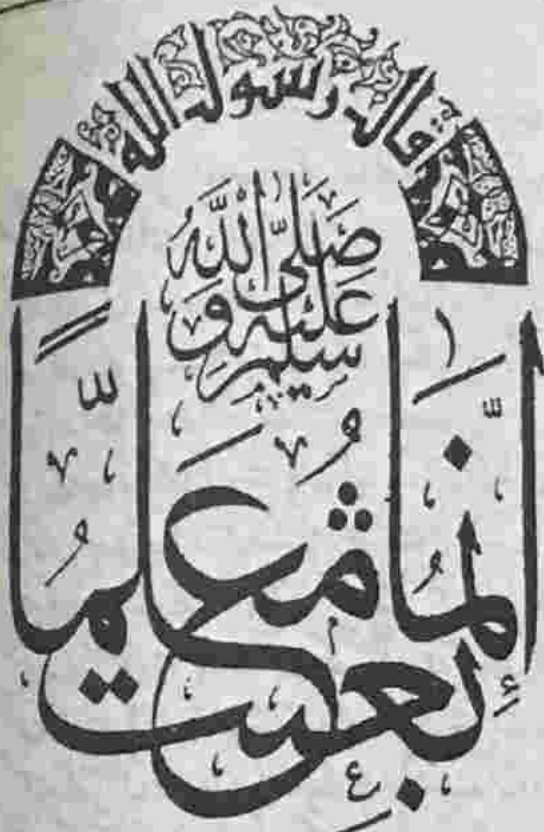 قال رسول الله
صَلَّى اللَّهُ
عَلَيْهِ وَ
سَلَّمَ
إِنَّمَا بُعِثْتُ مُعَلِّمًا